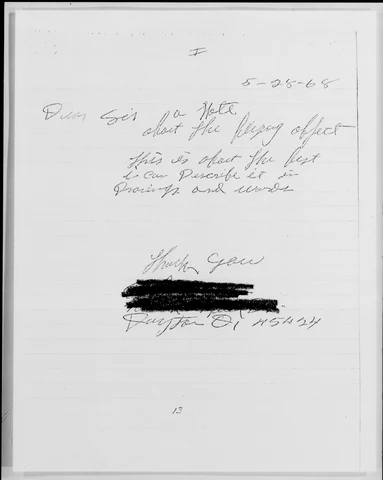 I
5-28-68
Dear Sir
a Note
about the flying object
this is about the best
i can Describe it in
Drawings and words
Thank you
Dayton O, 45424
13